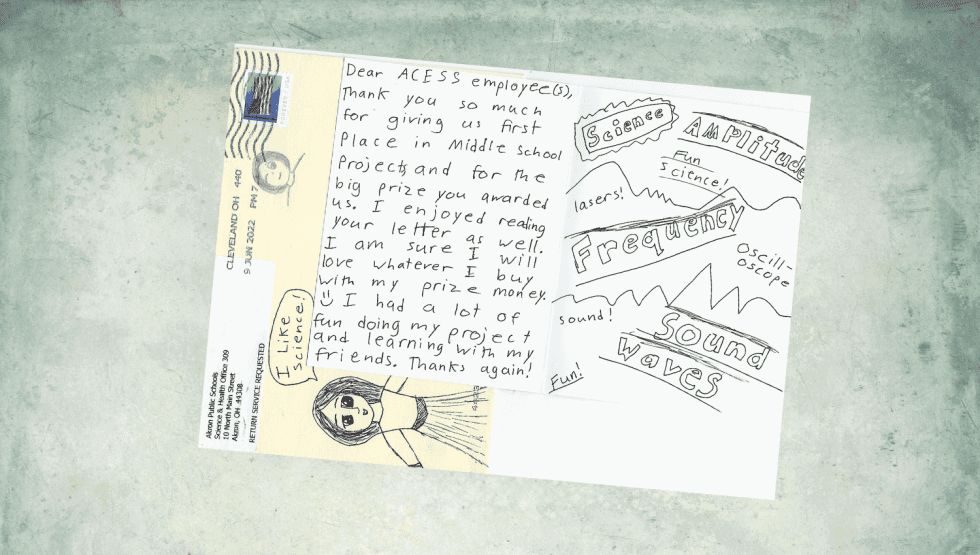 Dear ACESS employee(s),
Thank you so much
for giving us first
Place in Middle school
Projects, and for the
big prize you awarded
us. I enjoyed reading
your letter as well.
I am sure I will
love whatever I buy
with my prize money.
I had a lot of
fun doing my project
and learning with my
friends. Thanks again!
Science
AMPlitude
Fun
science!
lasers!
Frequency
Oscill-
oscope
sound!
Sound
waves
Fun!
CLEVELAND OH 440
9 JUN 2022 PM 7
I Like
science!
Akron Public Schools
Science & Health Office 309
10 North Main Street
Akron, OH 44308
RETURN SERVICE REQUESTED